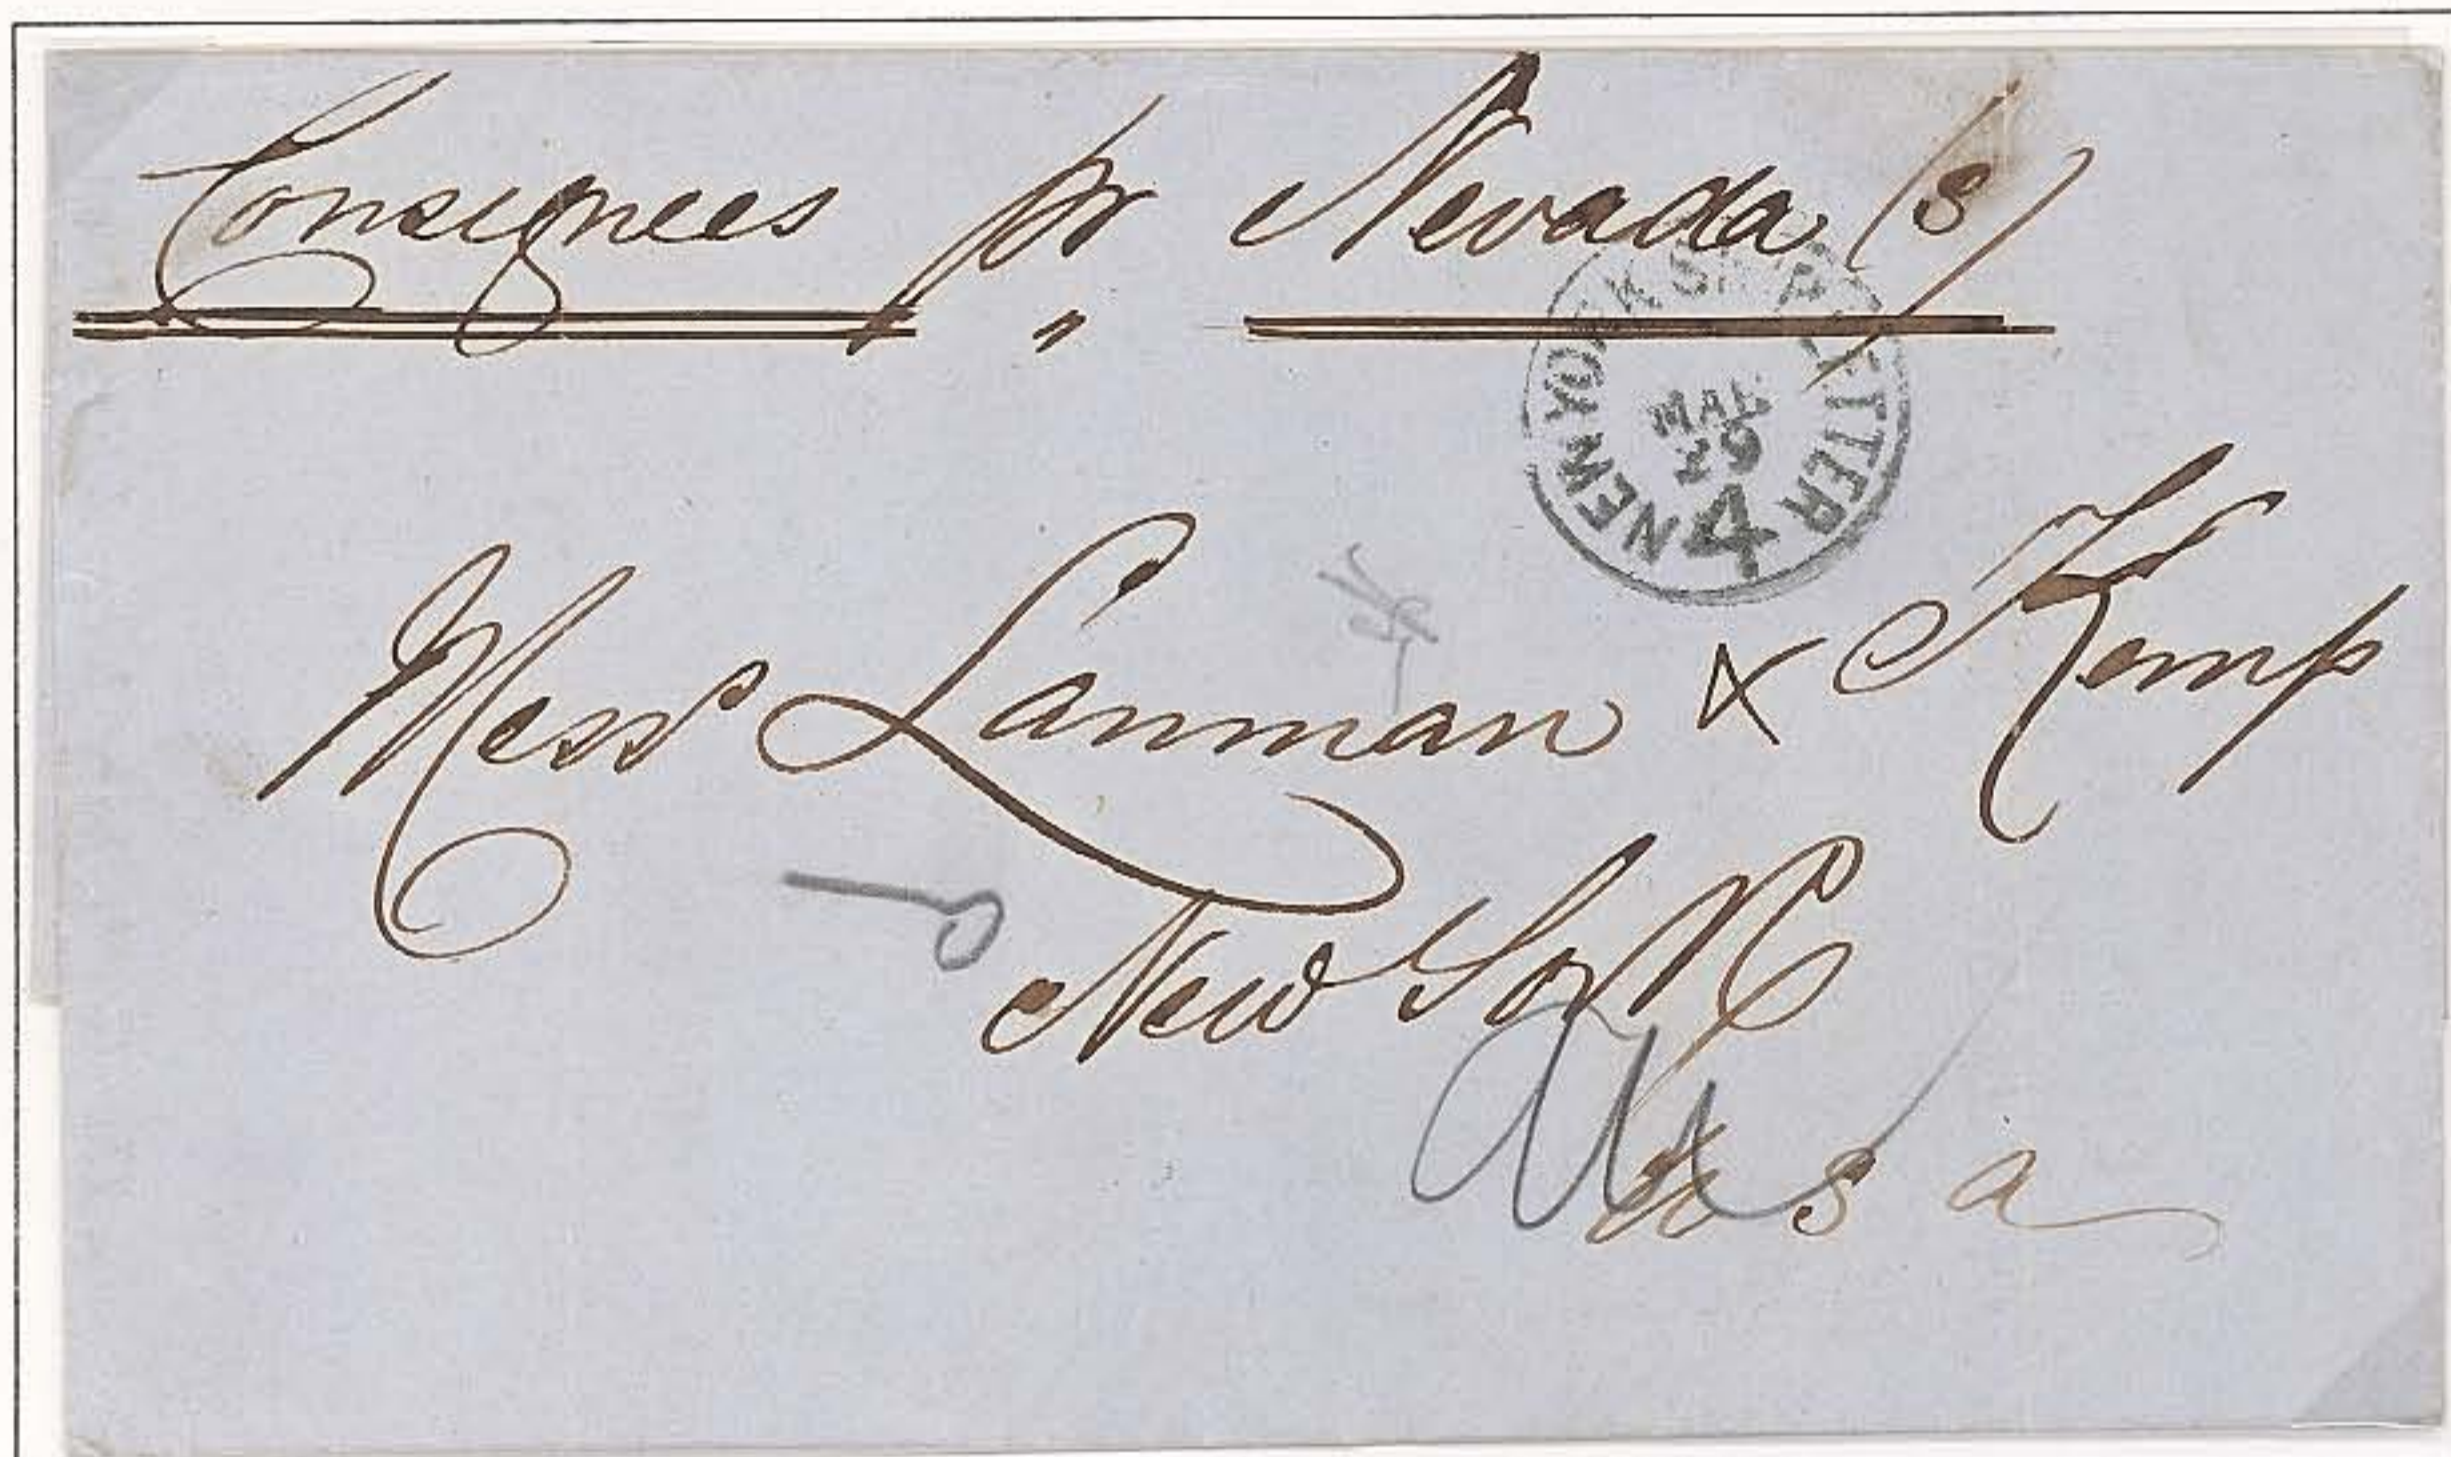 Consignees pr Nevada (s)
NEW YORK SHIP LETTER
MAR
29
4
Messrs Lanman & Kemp
New York
U S a